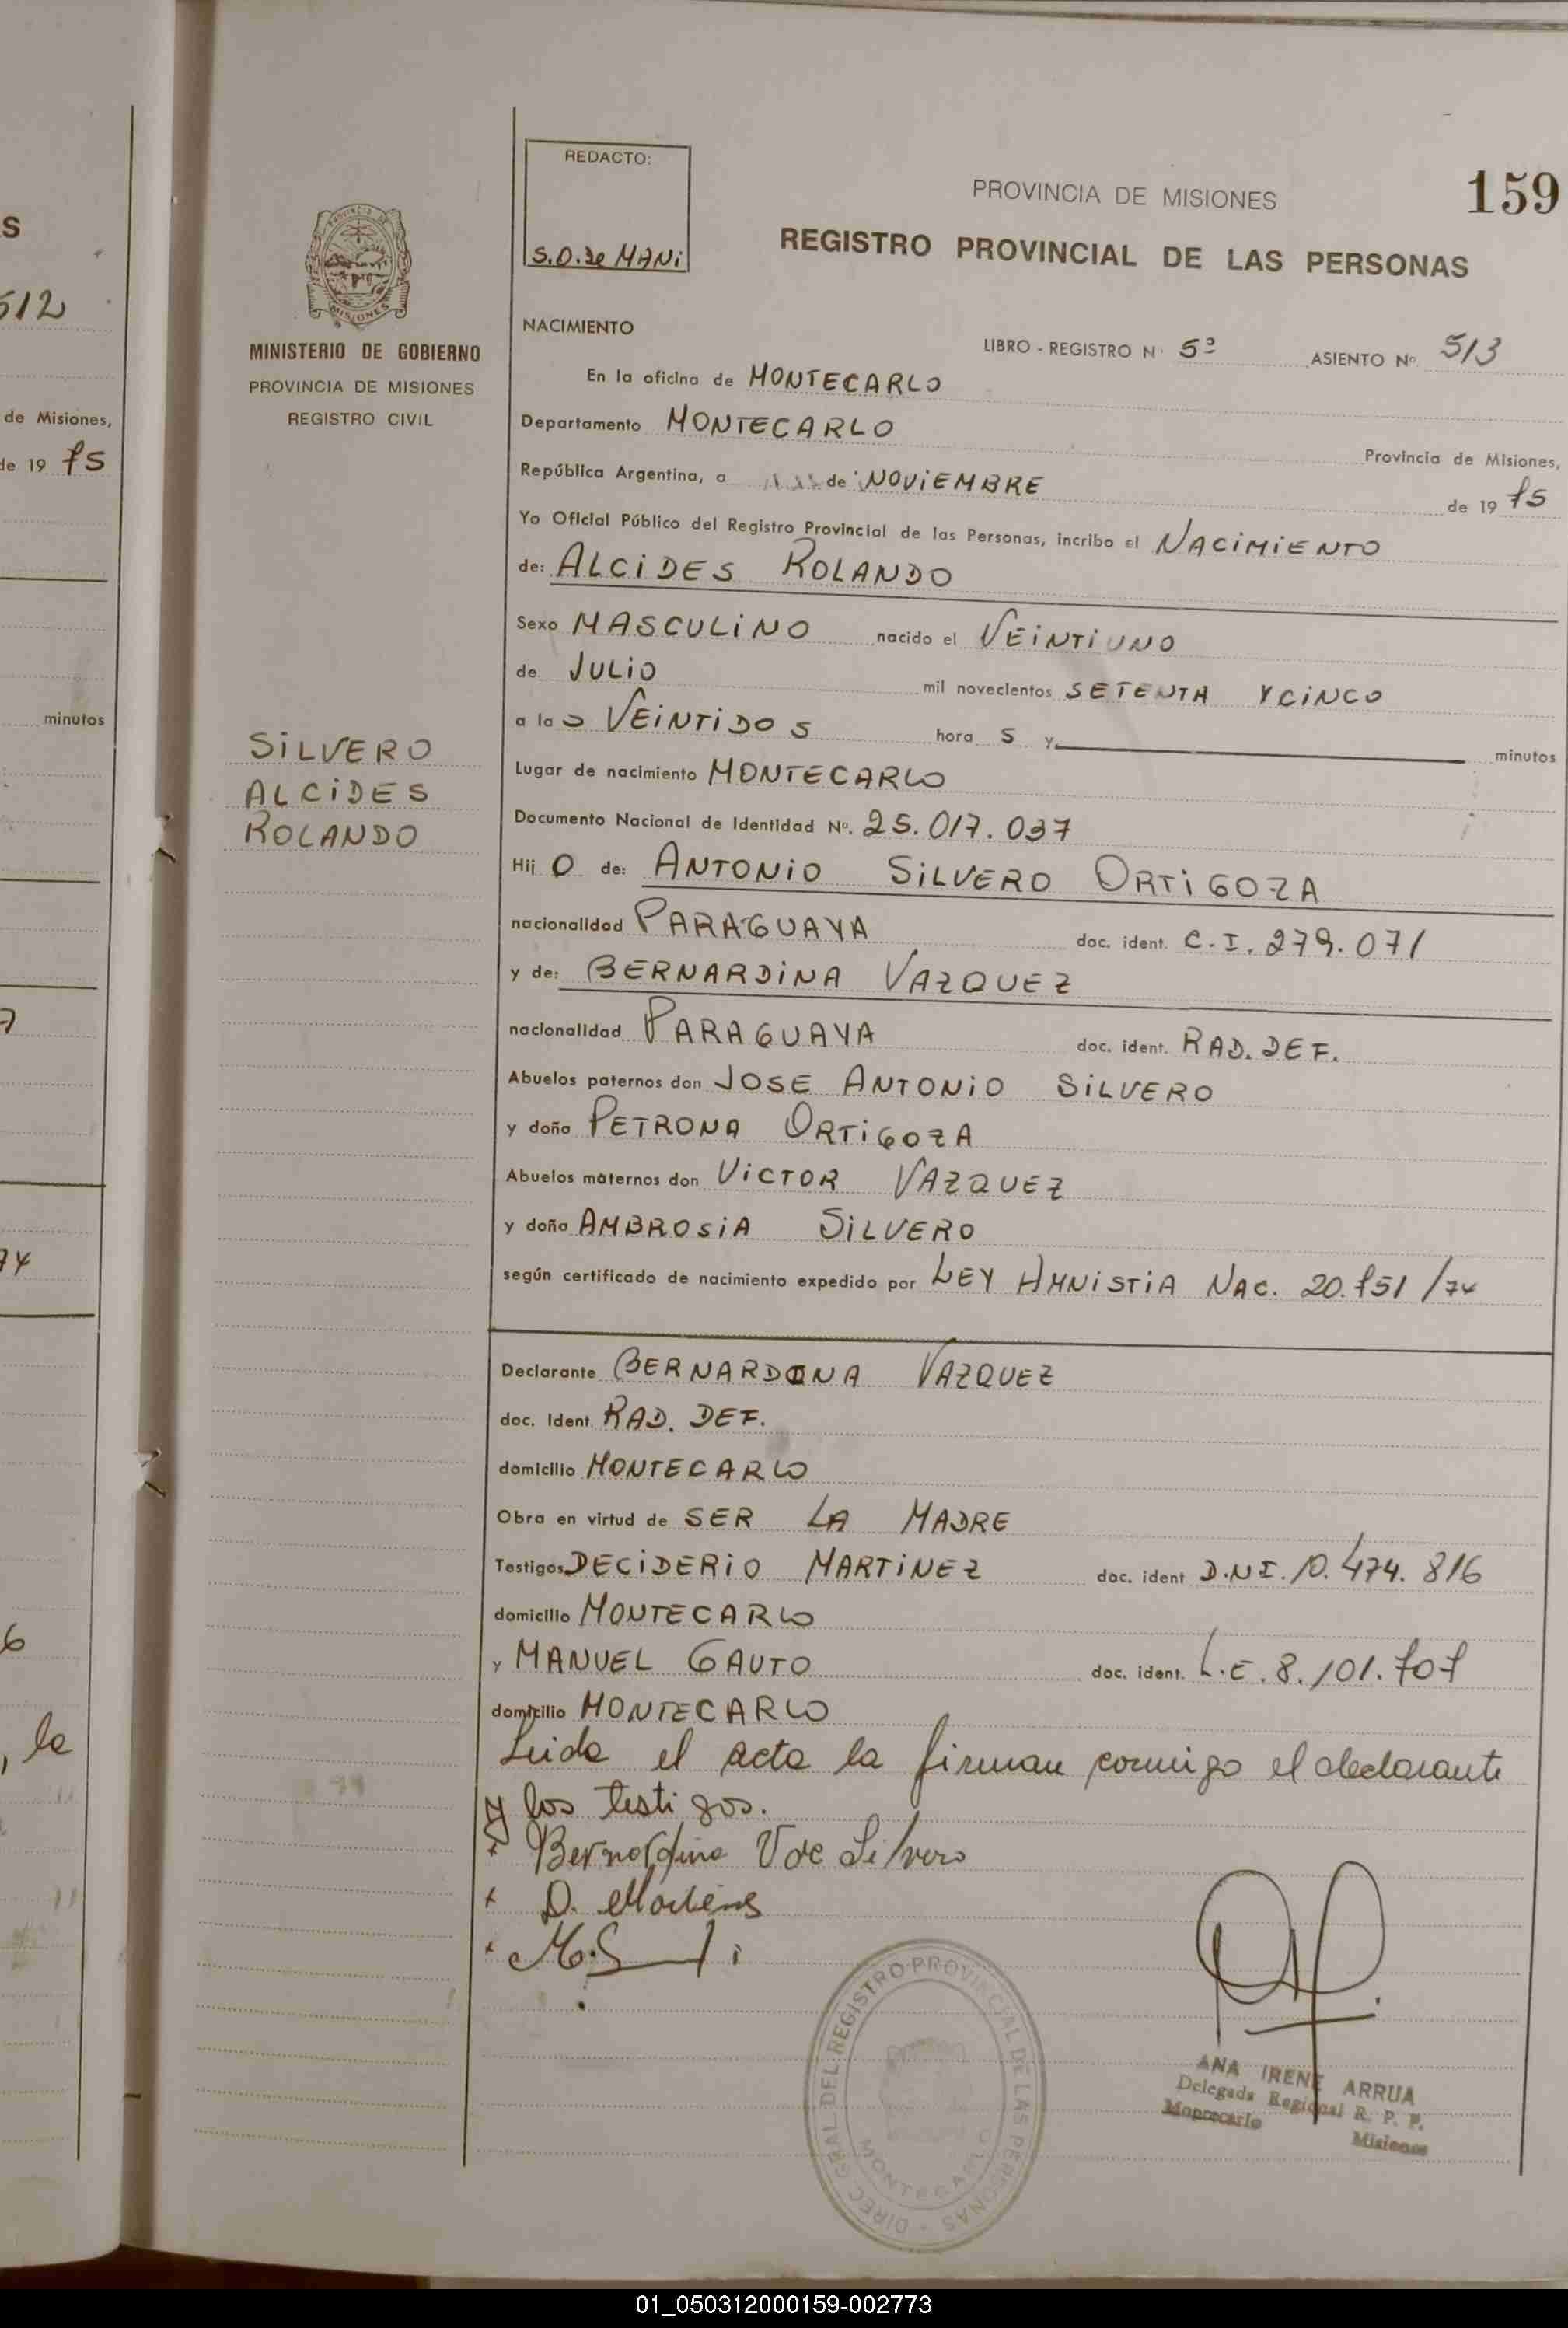 S
512
de Misiones,
de 19 75
minutos
7
74
6
, la
MINISTERIO DE GOBIERNO
PROVINCIA DE MISIONES
REGISTRO CIVIL
SILVERO
ALCIDES
ROLANDO
REDACTO:
S.O. de MANI
PROVINCIA DE MISIONES
159
REGISTRO PROVINCIAL DE LAS PERSONAS
NACIMIENTO
LIBRO - REGISTRO Nº 5º ASIENTO Nº 513
En la oficina de MONTECARLO
Departamento MONTECARLO
Provincia de Misiones,
República Argentina, a de NOVIEMBRE de 19 75
Yo Oficial Público del Registro Provincial de las Personas, incribo el NACIMIENTO
de: ALCIDES ROLANDO
Sexo MASCULINO nacido el VEINTIUNO
de JULIO mil novecientos SETENTA Y CINCO
a las VEINTIDOS horas y minutos
Lugar de nacimiento MONTECARLO
Documento Nacional de Identidad Nº. 25.017.037
Hijo de: ANTONIO SILVERO ORTIGOZA
nacionalidad PARAGUAYA doc. ident. C.I. 279.071
y de: BERNARDINA VAZQUEZ
nacionalidad PARAGUAYA doc. ident. RAD. DEF.
Abuelos paternos don JOSE ANTONIO SILVERO
y doña PETRONA ORTIGOZA
Abuelos maternos don VICTOR VAZQUEZ
y doña AMBROSIA SILVERO
según certificado de nacimiento expedido por LEY AMNISTIA NAC. 20.751/74
Declarante BERNARDINA VAZQUEZ
doc. Ident. RAD. DEF.
domicilio MONTECARLO
Obra en virtud de SER LA MADRE
Testigos DECIDERIO MARTINEZ doc. ident D.N.I. 10.474.816
domicilio MONTECARLO
y MANUEL GAUTO doc. ident. L.E. 8.101.707
domicilio MONTECARLO
Leida el acta la firman conmigo el declarante
y los testigos.
Bernardina V de Silvero
D. Martines
DIREC. GRAL. DEL REGISTRO PROVINCIAL DE LAS PERSONAS
MONTECARLO
ANA IRENE ARRUA
Delegada Regional R. P. P.
Montecarlo Misiones
01_050312000159-002773